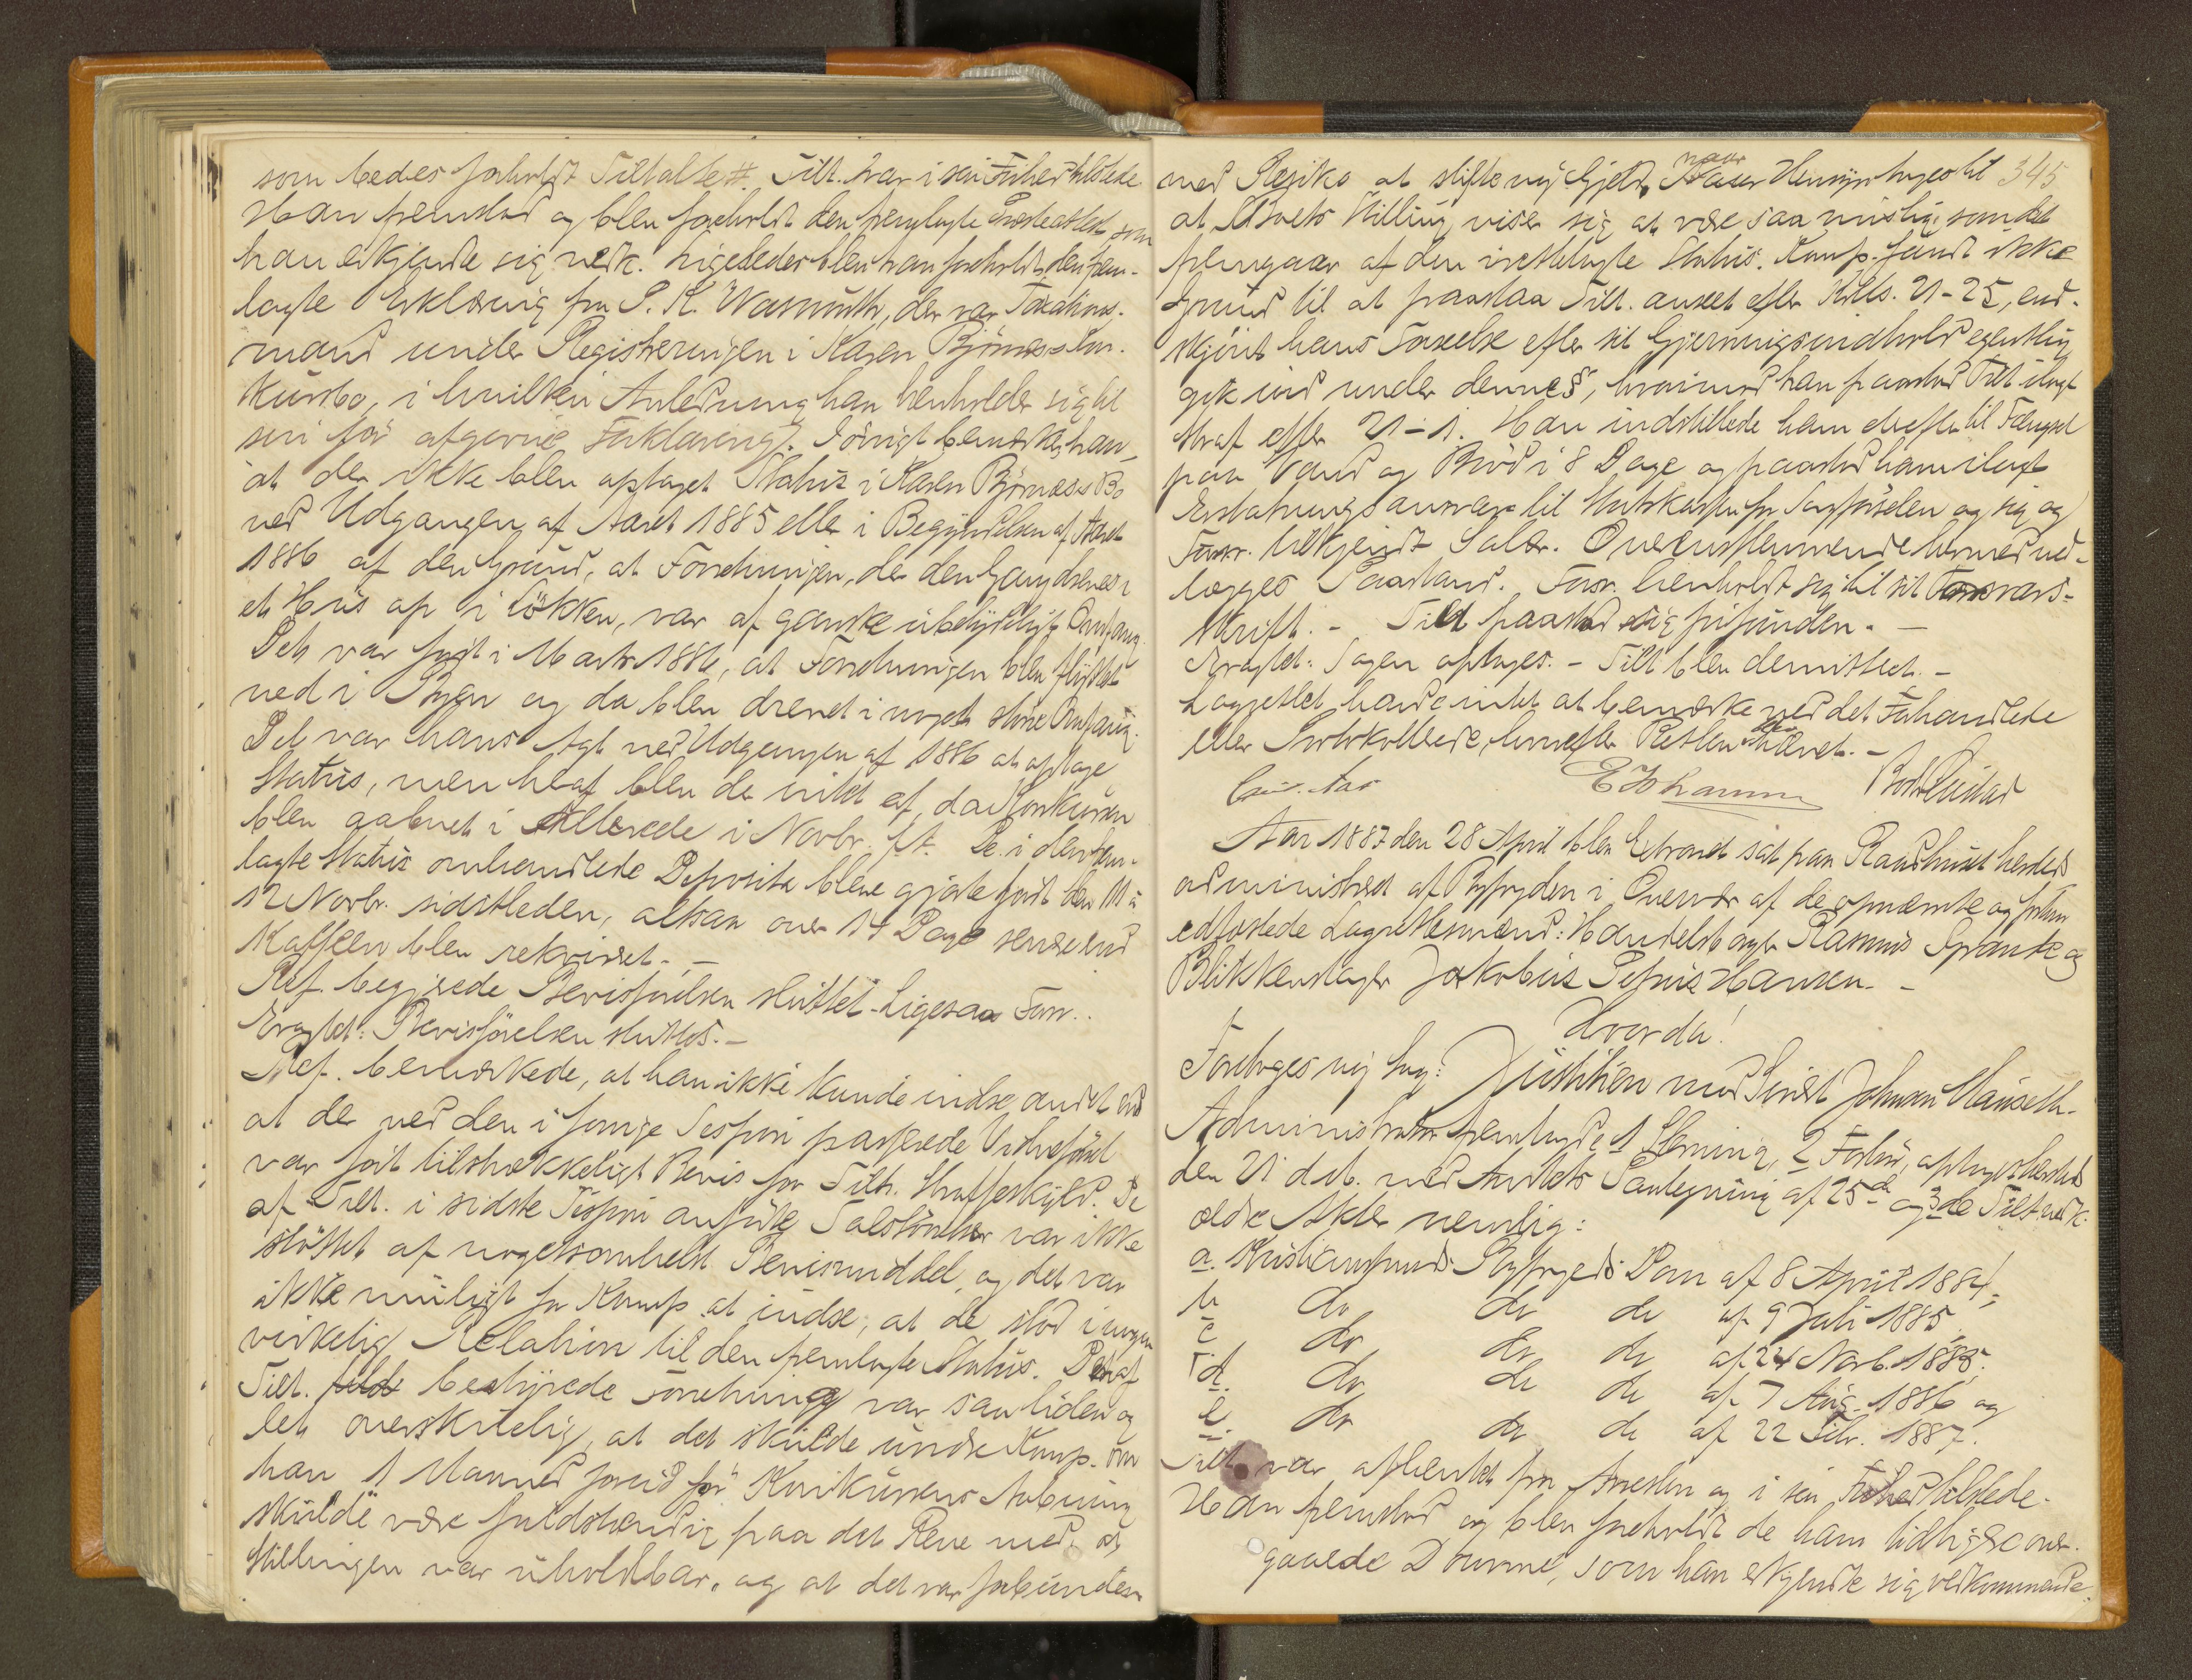 som bedes forholdt Tiltalte #. Tilt. var i sin Frihed tilstede.
Han fremstod og blev foreholdt den fremlagte Præsteattest, som
han erkjendte sig vedk. Ligeledes blev han foreholdt den frem-
lagte Erklæring fra S. K. Wasmuth, der var Taxations-
mand under Registreringen i Karen Bjørnæs's Kon-
kursbo, i hvilken Anledning han henholder sig til
sin før afgivne Forklaring. Iøvrigt bemærker han,
at der ikke blev optaget Status i Karen Bjørnæss Bo
ved Udgangen af Aaret 1885 eller i Begyndelsen af Aaret
1886 af den Grund, at Forretningen, der den Gang dreves i
et Hus op i Løkken, var af ganske ubetydeligt Omfang.
Det var først i Marts 1886, at Forretningen blev flyttet
ned i Byen og da blev drevet i noget større Omfang.
Det var hans Agt ved Udgangen af 1886 at optage
Status, men heraf blev der intet af, da Konkursen
blev aabnet i Allerede i Novbr. f. A. De i den frem-
lagte Status omhandlede Deposita bleve gjorte først den 11 à
12 Novbr. sidstleden, altsaa over 14 Dage senere end
Kaffeen blev rekvireret. –
Akt. begjærede Bevisførelsen sluttet. Ligesaa Forsv.
Eragtet: Bevisførelsen sluttes. –
Akt. bemærkede, at han ikke kunde indse andet end
at der ved den i forrige Session passerede Vidneførsel
var ført tilstrækkeligt Bevis for Tilt. Straffeskyld. De
af Tilt. i sidste Session anførte Talstørrelser var ikke
støttet af nogetsomhelst Bevismiddel, og det var
ikke muligt for Komp. at indse, at de stod i nogen
virkelig Relation til den fremlagte Status. Den af
Tilt. bestyrede Forretning var saa liden og
let overskuelig, at det skulde undre Komp. om
han 1 Maaned forud før Konkursens Aabning
skulde være fuldstændig paa det Rene med, at
Stillingen var uholdbar, og at det var forbunden
345
med Risiko at stifte ny Gjeld, naar Hensyn tages til
at Boets Stilling viser sig at være saa mislig, som det
fremgaar af den irettelagte Status. Komp. fandt ikke
Grund til at paastaa Tilt. anseet efter Krlls. 21-25, end-
skjønt hans Forseelse efter sit Gjerningsindhold egentlig
gik ind under denne §, hvorimod han paastod Tilt ilagt
Straf efter 21-1. Han indstillede ham derefter til Fængsel
paa Vand og Brød i 8 Dage og paastod ham ilagt
Erstatningsansvar til Statskassen for Sagførselen og sig og
Forsv. tilkjendt Salær. Overensstemmende hermed ned-
lægges Paastand. Forsv. henholdt sig til sit Forsvars-
skrift. – Tilt paastod sig frifunden. –
Eragtet: Sagen optages. – Tilt blev demitteret. –
Lagrettet havde intet at bemærke ved det Forhandlede
eller Protokollerede, hvorefter Retten blev hævet. –
Chr. Aas E Johannsen
Aar 1887 den 28 April blev Extraret sat paa Raadhuset hersteds
administreret af Byfogden i Overvær af de opnævnte og forhen
edfæstede Lagrettesmænd: Handelsborger Rasmus Frantz og
Blikkenslager Jakobus Petrus Hansen. –
Hvorda!
Foretoges ny Sag: Justitien mod Sivert Johnsen Hauseth.
Administrator fremlagde 1 Stevning, 2 Forhør, optaget hersteds
den 21 ds. med Amtets Paategning af 25de og 3de Tilt. vedk.
ældre Akter nemlig:
a. Kristiansunds Byfogeds Dom af 8 April 1884;
b do do do af 9 Juli 1885
c do do do af 24 Novb. 1885.
d. do do do af 7 Aug. 1886 og
e. do do do af 22 Febr. 1887.
Tilt. var afhentet fra Arresten og i sin Frihed tilstede.
Han fremstod og blev foreholdt de ham tidligere over-
gaaede Domme, som han erkjendte sig vedkommende.